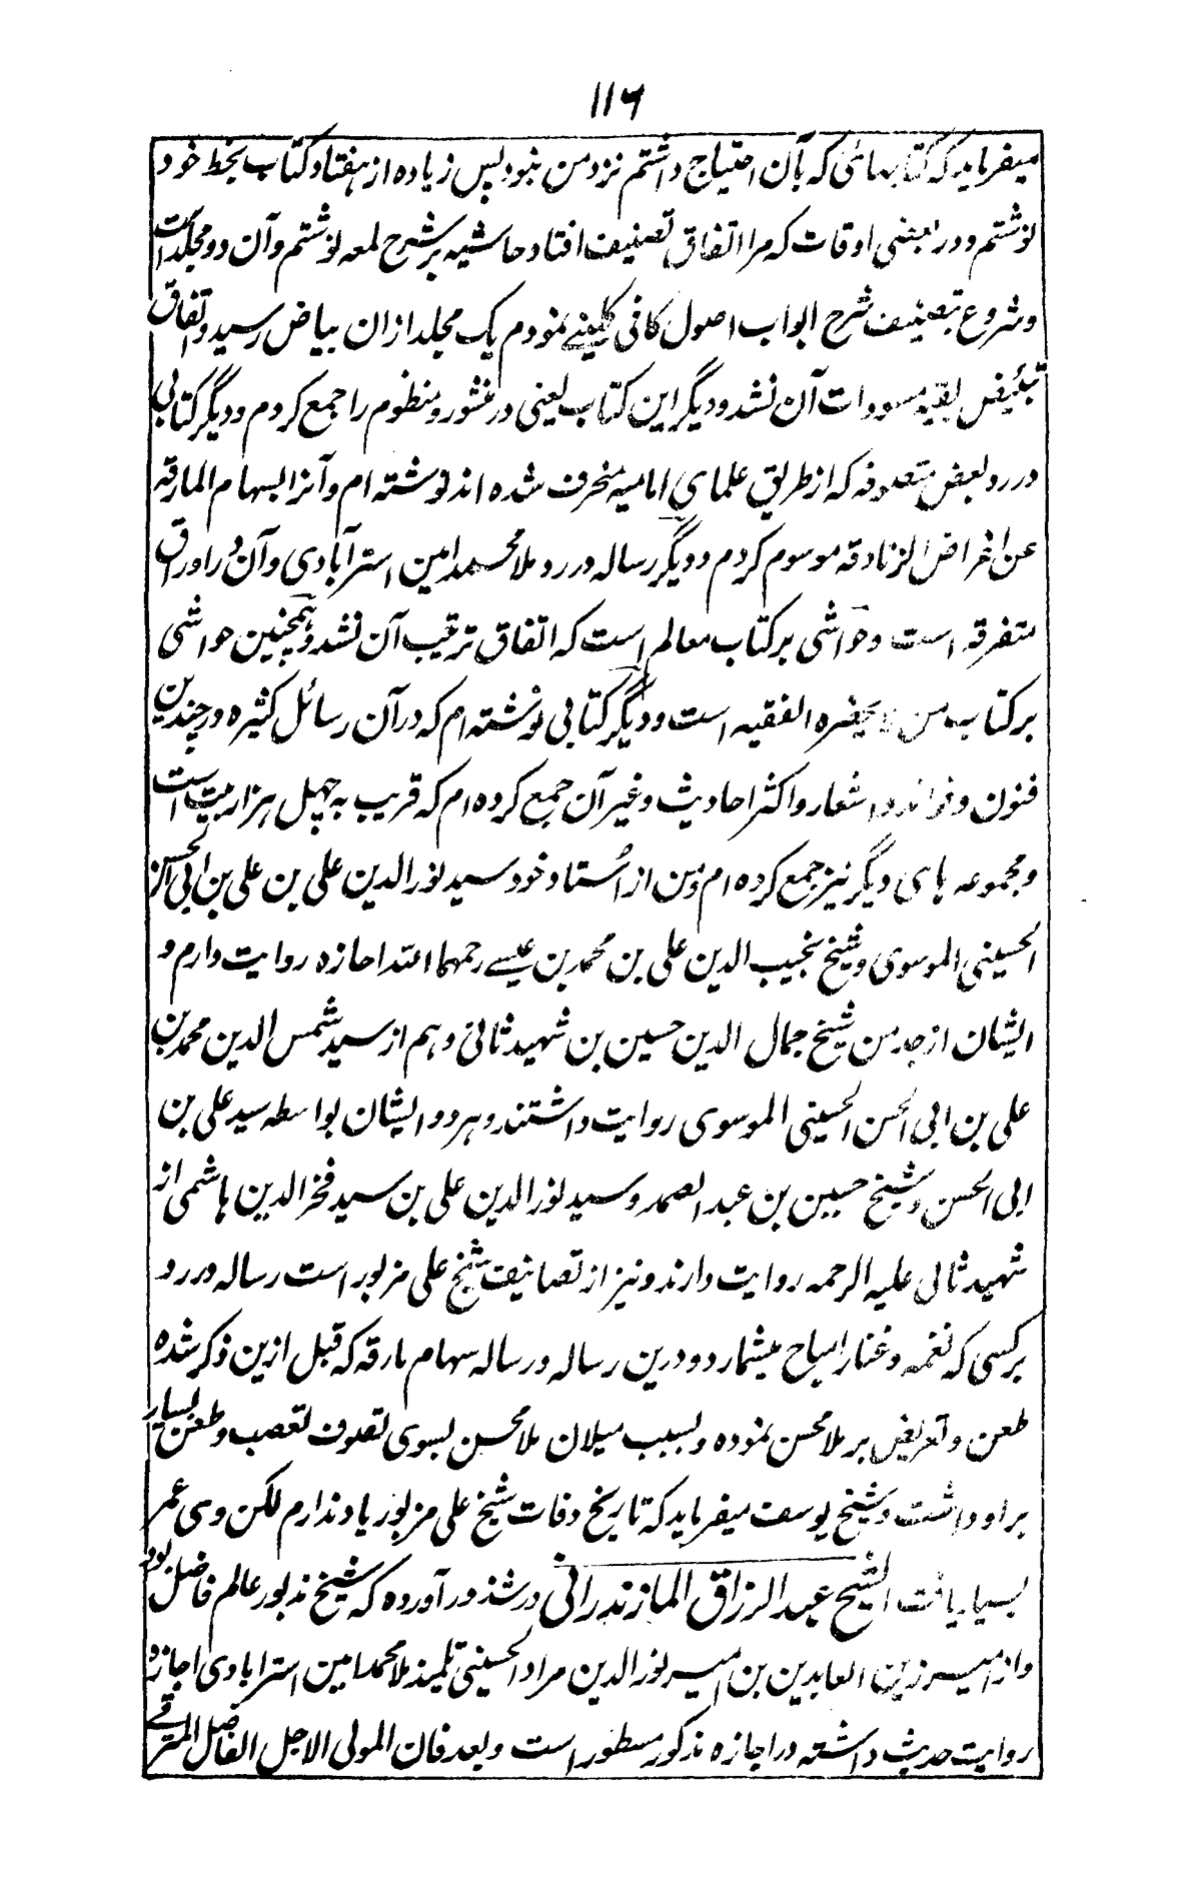 ۱۱۶
میفرماید که کتابهائی که بآن احتیاج داشتم نزد من نبود پس زیاده از هفتاد کتاب بخط خود
نوشتم و در بعضی اوقات که مرا اتفاق تصنیف افتاد حاشیه بر شرح لمعه نوشتم و آن دو مجلد است
و شروع بتصنیف شرح ابواب اصول کافی کلینی نمودم یک مجلد ازان ببیاض رسید و اتفاق
تبییض بقیه مسودات آن نشد و دیگر این کتاب یعنی در منثور و منظوم را جمع کردم و دیگر کتابی
در رد بعض متصوفه که از طریق علمای امامیه منحرف شده اند نوشته ام و آنرا بسهام المارقه
عن اغراض الزنادقه موسوم کردم و دیگر رساله در رد ملا محمد امین استرآبادی و آن در اوراق
متفرقه است و حواشی بر کتاب معالم است که اتفاق ترتیب آن نشد و همچنین حواشی
بر کتاب من لا یحضره الفقیه است و دیگر کتابی نوشته ام که در آن رسائل کثیره در چندین
فنون و فوائد و اشعار و اکثر احادیث و غیر آن جمع کرده ام که قریب به چهل هزار بیت است
و مجموعه های دیگر نیز جمع کرده ام و من از اُستاد خود سید نور الدین علی بن علی بن ابی الحسن
الحسینی الموسوی و شیخ نجیب الدین علی بن محمد بن عیسے رحمهما الله اجازه روایت دارم و
ایشان از جد من شیخ جمال الدین حسین بن شهید ثانی و هم از سید شمس الدین محمد بن
علی بن ابی الحسن الحسینی الموسوی روایت داشتند و هر دو ایشان بواسطه سید علی بن
ابی الحسن و شیخ حسین بن عبد الصمد و سید نور الدین علی بن سید فخر الدین هاشمی از
شهید ثانی علیه الرحمه روایت دارند و نیز از تصانیف شیخ علی مزبور است رساله در رد
بر کسی که نغمه و غنا را مباح میشمارد و درین رساله و رساله سهام مارقه که قبل ازین ذکر شده
طعن و تعریض بر ملا محسن نموده و بسبب میلان ملا محسن بسوی تصوف تعصب و طعن بسیار
بر او داشت و شیخ یوسف میفرماید که تاریخ وفات شیخ علی مزبور یاد ندارم لکن وی عمر
بسیار یافت الشیخ عبد الرزاق المازندرانی در شذور آورده که شیخ مذبور عالم فاضل بود
و از امیر زین العابدین بن امیر نور الدین مراد الحسینی تلمیذ ملا محمد امین استرابادی اجازه
روایت حدیث داشته در اجازه مذکور مسطور است و بعد فان المولی الاجل الفاضل المترقے